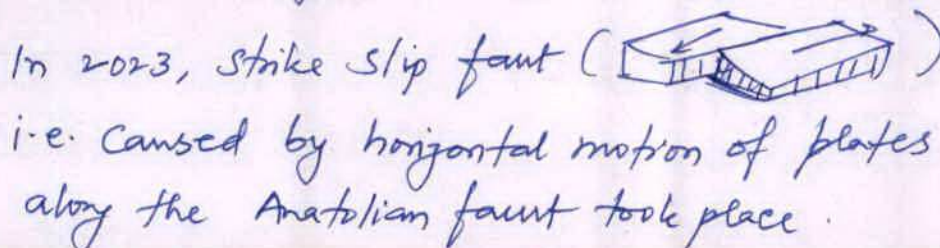 In 2023, Strike slip faut ( )
i.e. Caused by horizontal motion of plates
along the Anatolian faurt took place.